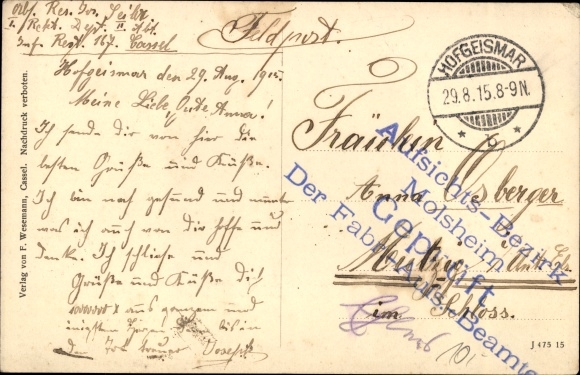 Res. Jos. Seiler
I. Rekr. Dept. II. Abt.
Inf. Regt. 167. Cassel
Feldpost.
Hofgeismar den 29. Aug. 1915.
Meine Liebe, Gute Anna!
Ich sende dir von hier die
besten Grüße und Küße.
Ich bin noch gesund und munter
was ich auch von dir hoffe und
denke. Ich schließe und
Grüße und Küße dich
1000000 x aus ganzem und
innigsten Herzen
Dein treuer Joseph
Verlag von F. Wesemann, Cassel. Nachdruck verboten.
HOFGEISMAR
29.8.15.8-9N.
Fräulein
Anna Osberger
Mutzig
im Schloss.
Aufsichts-Bezirk
Molsheim
Geprüft
Der Fabr. Aufs. Beamte
J 475 15